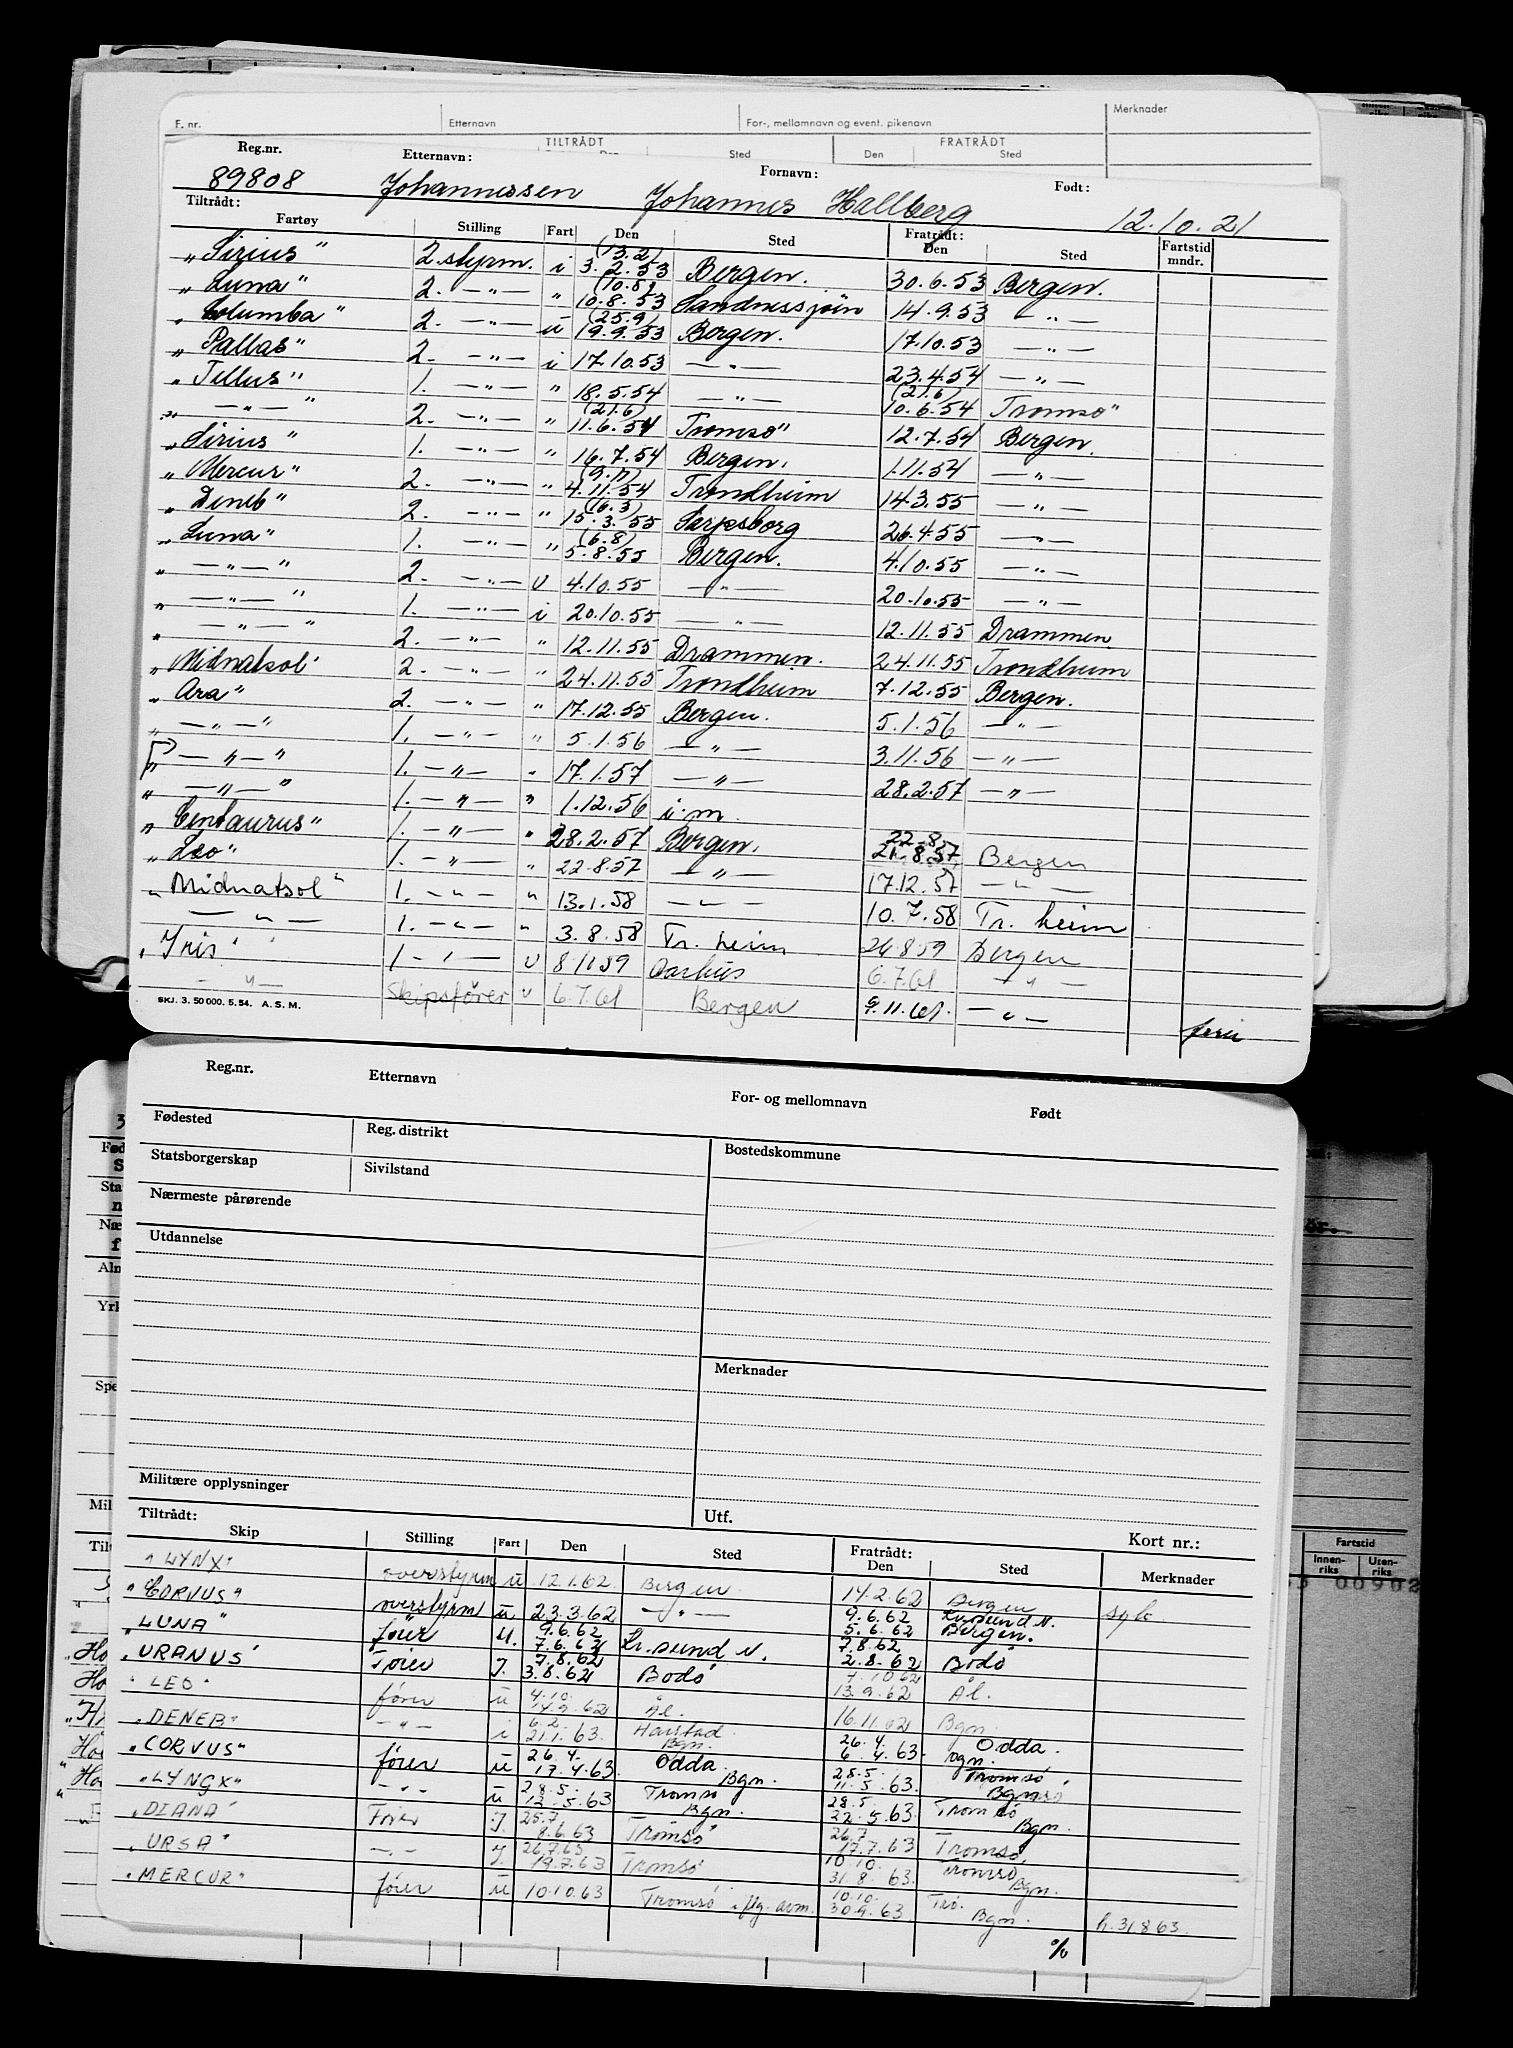 F. nr. Etternavn For-, mellomnavn og event. pikenavn Merknader
TILTRÅDT FRATRÅDT
Sted Den Sted
Reg.nr. Etternavn: Fornavn: Født:
89808 Johannessen Johannes Hallberg 12.10.21
Tiltrådt: Fratrådt:
Fartøy Stilling Fart Den Sted Den Sted Fartstid mndr.
"Sirius" 2. styrm. i (13.2) 3.2.53 Bergen. 30.6.53 Bergen.
"Luna" 2. —"— " (10.8) 10.8.53 Sandnessjøen 14.9.53 —"—
"Columba" 2. —"— u (25.9) 19.9.53 Bergen. 17.10.53 —"—
"Pallas" 2. —"— i 17.10.53 —"— 23.4.54 —"—
"Tellus" 1. —"— " 18.5.54 —"— (21.6) 10.6.54 Tromsø
" —"— " 2. —"— " (21.6) 11.6.54 Tromsø 12.7.54 Bergen.
"Sirius" 1. —"— " 16.7.54 Bergen. 1.11.54 —"—
"Mercur" 2. —"— " (9.11) 4.11.54 Trondheim 14.3.55 —"—
"Deneb" 2. —"— " (16.3) 15.3.55 Sarpsborg 26.4.55 —"—
"Luna" 1. —"— " (6.8) 5.8.55 Bergen. 4.10.55 —"—
" —"— " 2. —"— u 4.10.55 —"— 20.10.55 —"—
" —"— " 1. —"— i 20.10.55 —"— 12.11.55 Drammen
" —"— " 2. —"— " 12.11.55 Drammen. 24.11.55 Trondheim
"Midnatsol" 2. —"— " 24.11.55 Trondheim 7.12.55 Bergen.
"Ara" 2. —"— " 17.12.55 Bergen. 5.1.56 —"—
" —"— " 1. —"— " 5.1.56 —"— 3.11.56 —"—
" —"— " 1. —"— " 17.1.57 —"— 28.2.57 —"—
" —"— " 1. —"— " 1.12.56 i.m.
"Centaurus" 1. —"— " 28.2.57 Bergen. 22.8. 21.8.57 Bergen
"Leo" 1. —"— " 22.8.57 —"— 17.12.57 —"—
"Midnatsol" 1. —"— " 13.1.58 —"— 10.7.58 Tr. heim
—"— 1. —"— " 3.8.58 Tr. heim 26.8.59 Bergen
"Iris" 1 —"— u 8.11.59 Aarhus 6.7.61 —"—
—"— Skipsfører u 6.7.61 Bergen 9.11.61. —"—
SKJ. 3. 50 000. 5. 54. A. S. M.
Reg.nr. Etternavn For- og mellomnavn Født
Fødested Reg. distrikt Bostedskommune
Statsborgerskap Sivilstand
Nærmeste pårørende
Utdannelse
Merknader
Militære opplysninger
Utf. Kort nr.:
Tiltrådt: Fratrådt:
Skip Stilling Fart Den Sted Den Sted Merknader
"LYNX" overstyrm u 12.1.62 Bergen 14.2.62 Bergen syk
"CORVUS" overstyrm u 23.3.62 —"— 9.6.62 5.6.62 Kr.sund N. Bergen.
"LUNA" fører u. 9.6.62 7.6.62 Kr.sund N. 7.8.62 2.8.62 Bodø
"URANUS" Fører I. 7.8.62 3.8.62 Bodø 13.9.62 Ål.
"LEO" fører u 4.10. 14.9.62 Ål. 16.11.62 Bgn.
"DENEB" —"— i 6.2. 21.1.63. Harstad Bgn. 26.4. 6.4.63. Odda. Bgn.
"CORVUS" fører u 26.4. 17.4.63. Odda. Bgn. 28.5. 11.5.63. Tromsø
"LYNGX" —"— u 28.5. 12.5.63 Tromsø Bgn. 28.5. 22.5.63. Tromsø Bgn.
"DIANA" Fører I. 25.7 8.6.63 Tromsø 26.7 17.7.63 Tromsø
"URSA" —"— I. 26.7.63 19.7.63 Tromsø 10.10. 31.8.63. Tromsø Bgn.
"MERCUR" fører u 10.10.63 Tromsø 10.10. 30.9.63. Trø. Bgn. h. 31 8 63.
%
Fartstid
Innenriks Utenriks
00902